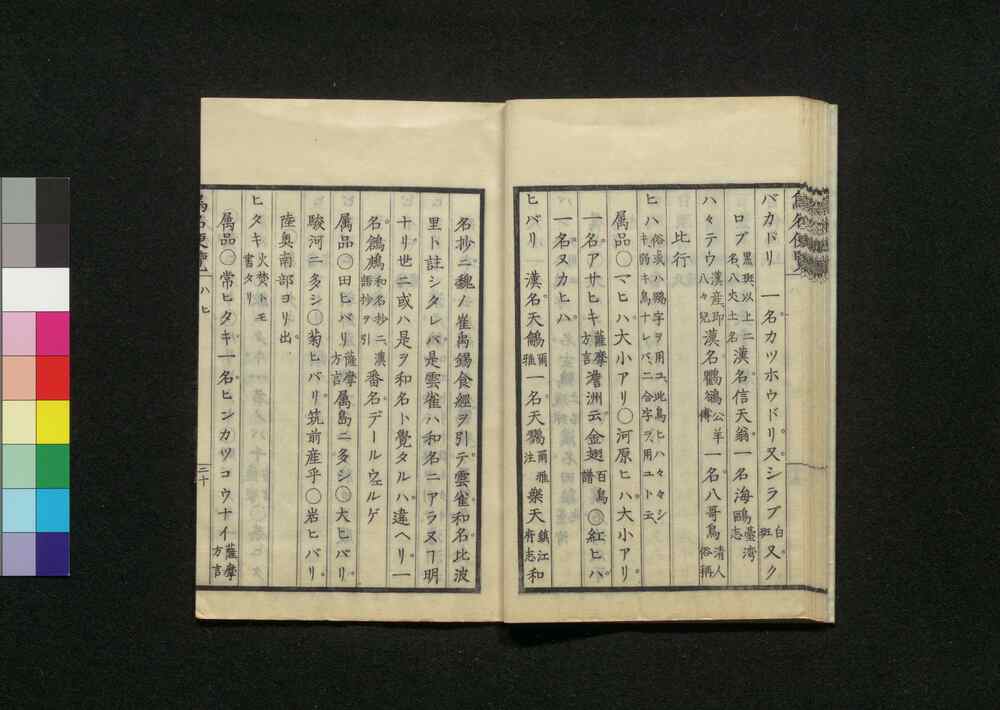 バカドリ 一名カツホウドリ又シラブ白斑又ク
ロブ黒斑以上二名八丈土名漢名信天翁一名海鷗臺湾志
ハ々テウ漢産即八々兒漢名鸜鵒公羊傳一名八哥鳥清人俗稱
比行
ヒハ俗或ハ鶸字ヲ用ユ此鳥ヒハ々々シキ弱キ鳥ナレバ二合字ヲ用ユト云
属品○マヒハ大小アリ○河原ヒハ大小アリ
一名アサヒキ薩摩方言澹洲云金翅百鳥譜○紅ヒハ
一名ヌカヒハ
ヒバリ 漢名天鸙爾雅一名天鷚爾雅注樂天鎮江府志和
名抄ニ魏ノ崔禹錫食經ヲ引テ雲雀和名比波
里ト註シタレバ是雲雀ハ和名ニアラヌヿ明
ナリ世ニ或ハ是ヲ和名ト覺タルハ違ヘリ一
名鶬鶊和名抄ニ漢語抄ヲ引番名デールウェルゲ
属品○田ヒバリ薩摩方言属島ニ多シ○大ヒバリ
駿河ニ多シ○菊ヒバリ筑前産乎○岩ヒバリ
陸奥南部ヨリ出
ヒタキ火焚トモ書タリ
属品○常ヒタキ一名ヒンカツコウナイ薩摩方言
ハ ヒ
二十